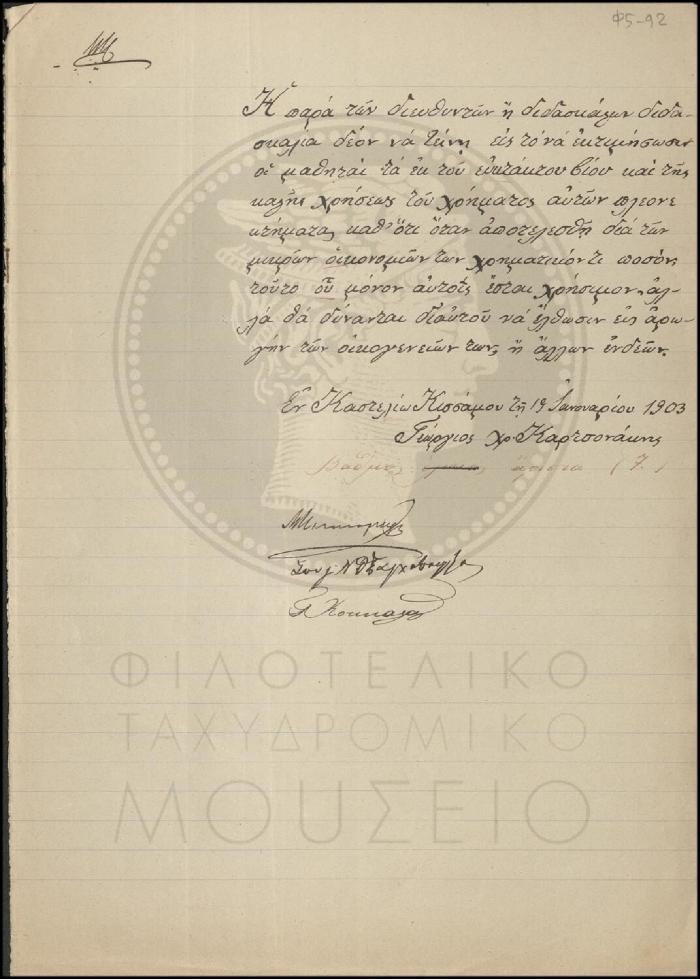 Φ5-92
Ἡ παρὰ τῶν διευθυντῶν ἢ διδασκάλων διδα-
σκαλία δέον νὰ τείνῃ εἰς τὸ νὰ ἐκτιμήσωσιν
οἱ μαθηταὶ τὰ ἐκ τοῦ εὐτάκτου βίου καὶ τῆς
καλῆς χρήσεως τοῦ χρήματος αὐτῶν πλεονε
κτήματα, καθ' ὅτι ὅταν ἀποτελεσθῇ διὰ τῶν
μικρῶν οἰκονομιῶν των χρηματικόν τι ποσόν,
τοῦτο οὐ μόνον αὐτοῖς ἔσται χρήσιμον, ἀλ-
λὰ θὰ δύνανται δι' αὐτοῦ νὰ ἔλθωσιν εἰς ἀρω-
γὴν τῶν οἰκογενειῶν των, ἢ ἄλλων ἐνδεῶν.
Ἐν Καστελίῳ Κισσάμου τῇ 19 Ἰανουαρίου 1903
Γεώργιος Χρ. Καρτσονάκης
Βαθμὸς ἄριστα (7.)
ΦΙΛΟΤΕΛΙΚΟ
ΤΑΧΥΔΡΟΜΙΚΟ
ΜΟΥΣΕΙΟ